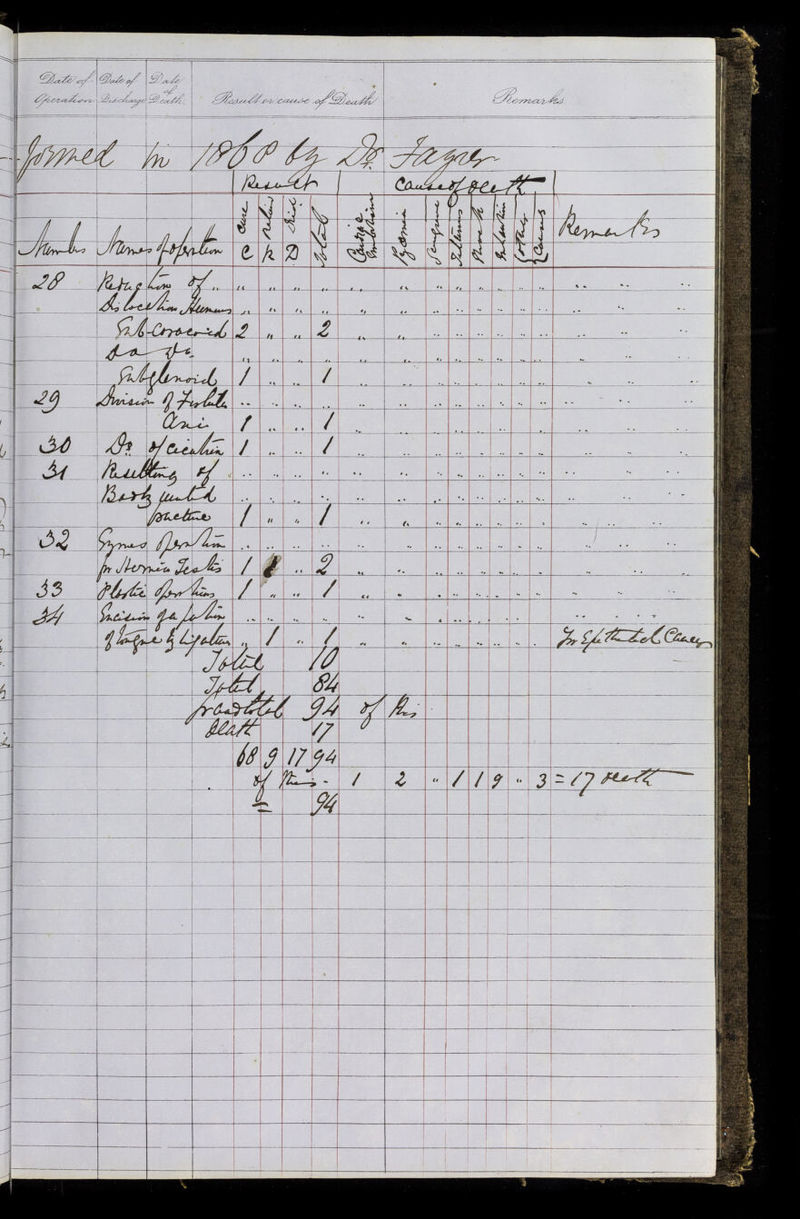 Date of Operation Date of Discharge Date of Death Result or cause of Death Remarks
formed in 1868 by Dr. Fayrer
Result Cause of death
Number Names of operation Cure C R Died D Total Cardiac Embolism Pyæmia Gangrene Tetanus Shock Exhaustion Other Causes Remarks
28 Reduction of " " " " " " " " " " " " " " " "
Dislocation Humerus " " " " " " " " " " " " " " "
Sub-Coracoid 2 " " 2 " " " " " " " " " " "
Do Do. " " " " " " " " " " " " " " "
Subglenoid 1 " " 1 " " " " " " " " " " "
29 Division of Fistula " " " " " " " " " " " " " " "
Ani 1 " " 1 " " " " " " " " " " "
30 Do. of cicatrix 1 " " 1 " " " " " " " " " " "
31 Resetting of " " " " " " " " " " " " " " "
Badly united " " " " " " " " " " " " " " "
fracture 1 " " 1 " " " " " " " " " " "
32 Symes Operation " " " " " " " " " " " " " " "
for Hernia Testis 1 1 " 2 " " " " " " " " " " "
33 Plastic Operations 1 " " 1 " " " " " " " " " " "
34 Excision of a portion " " " " " " " " " " " " " " "
of tongue by ligature " 1 " 1 " " " " " " " " For Epithelial Cancer
Total 10
Total 84
Grand total 94 of this
death 17
68 9 17 94
of this - 1 2 " 1 1 9 " 3 = 17 death
= 94